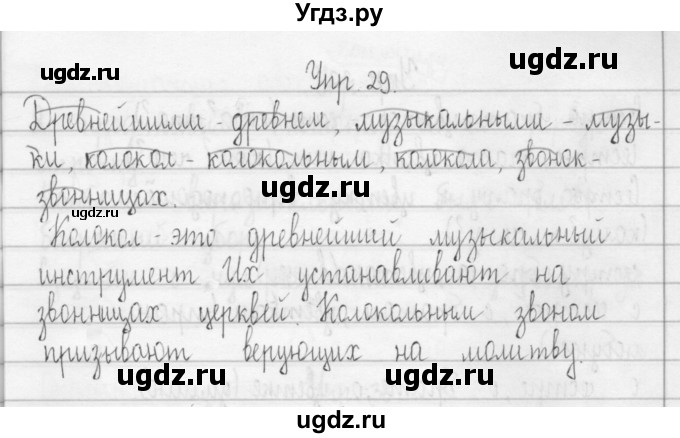 Угдз.ру
ugdz.ru ugdz.ru
Упр 29.
Древнейшими - древнем, музыкальными - музы-
ки, колокол - колокольным, колокола, звонок -
ugdz.ru
звонницах.
Колокол это древнейший музыкальный
инструмент Их устанавливают на
ugdz.ru ugdz.ru
звонницах церквей. Колокольным звоном
призывают верующих на молитву.
ugdz.ru ugdz.ru
ugdz.ru